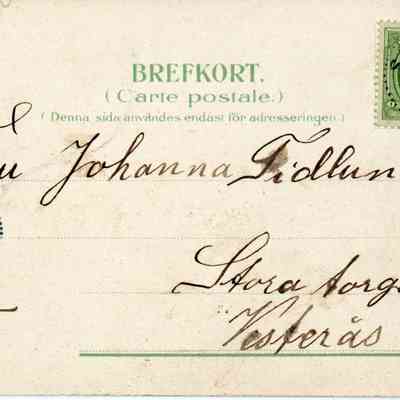 BREFKORT.
(Carte postale.)
(Denna sida användes endast för adresseringen.)
Johanna Tidlun
Stora torg
Vesterås